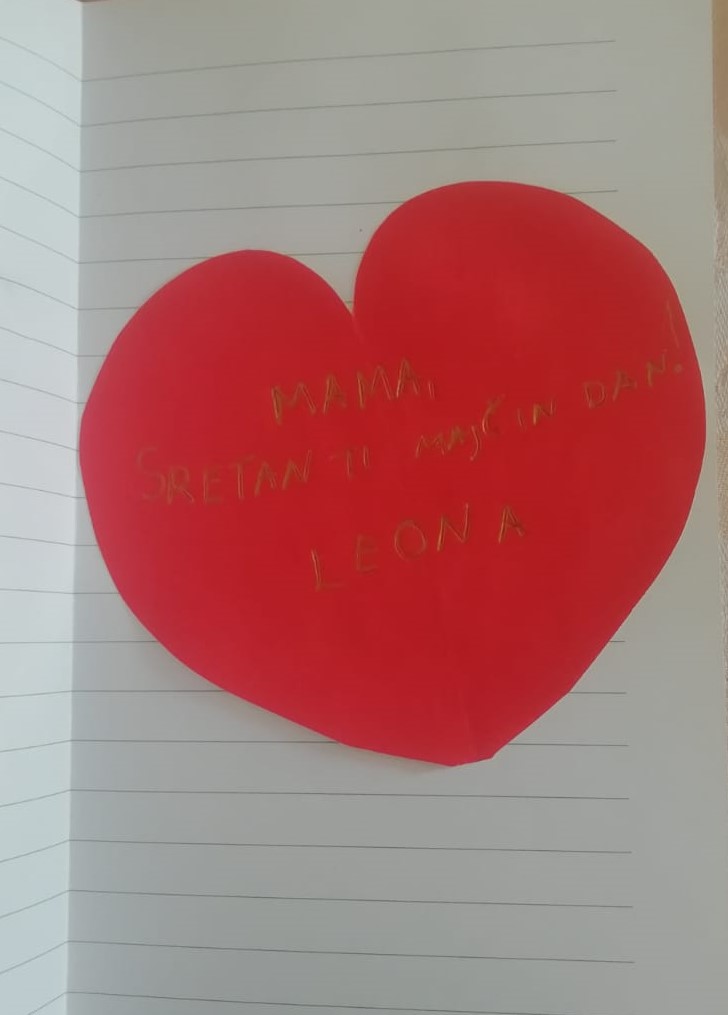 MAMA,
SRETAN TI MAJČIN DAN!
LEONA